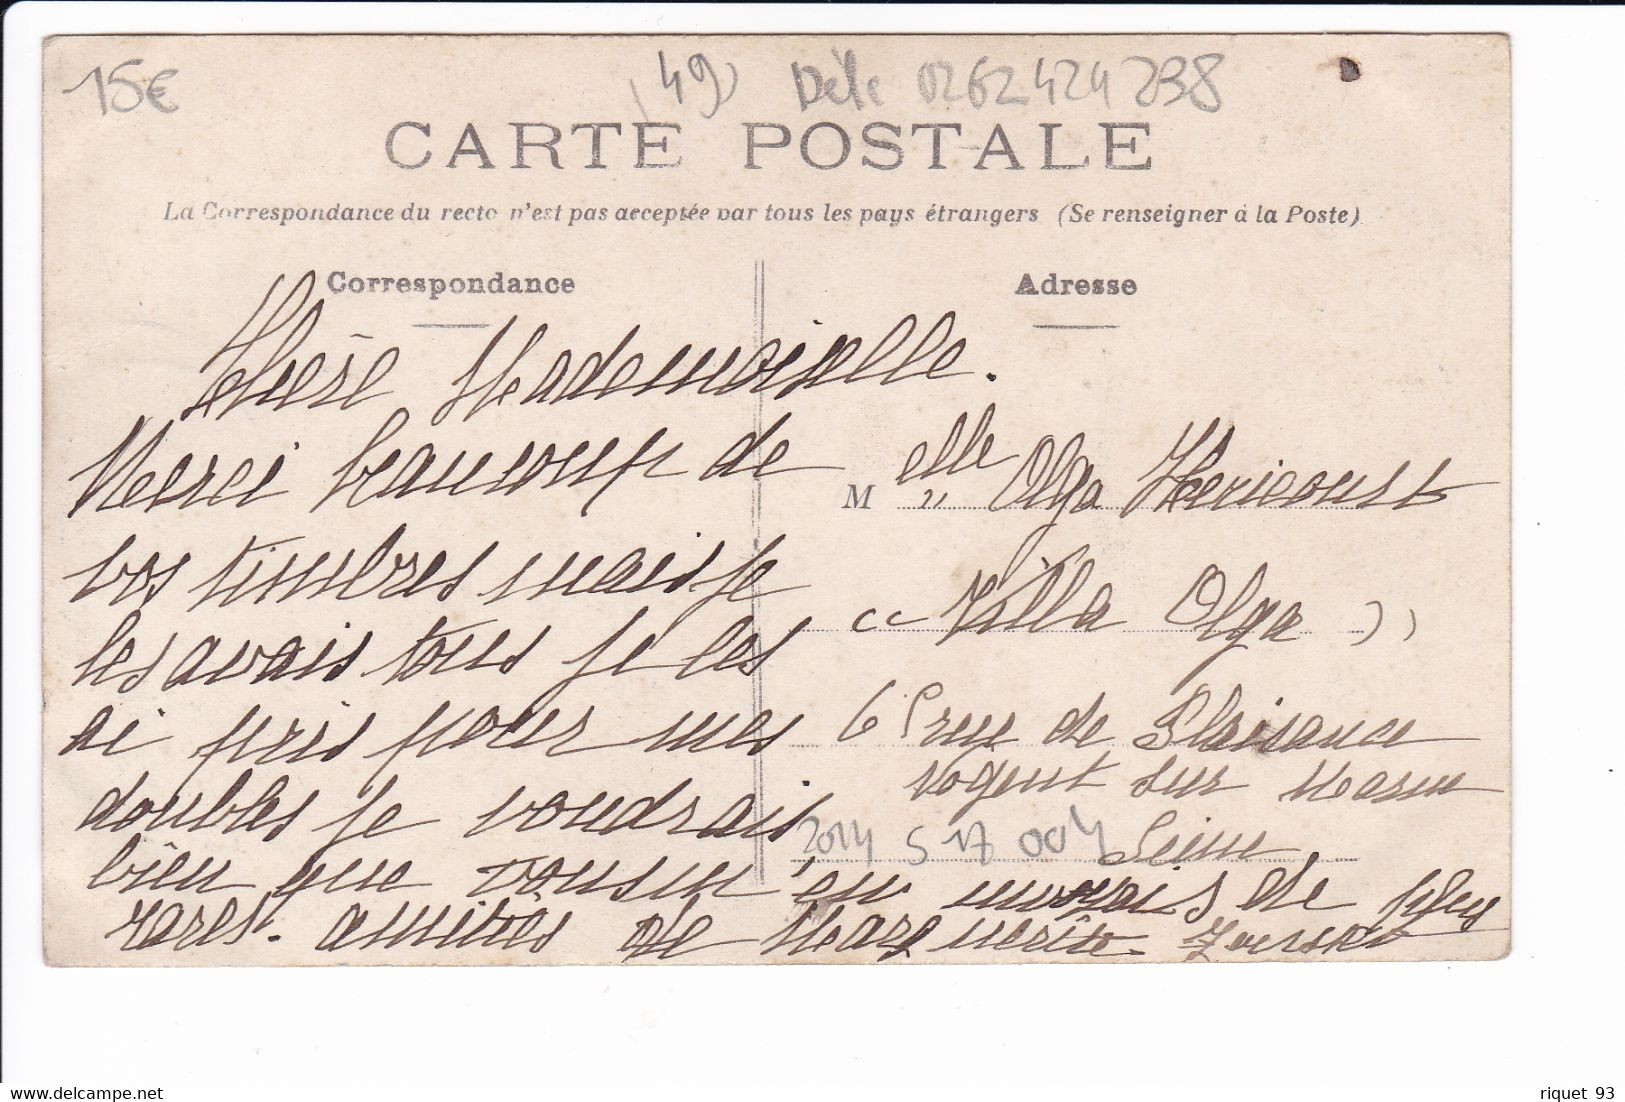 15€ (49) Dele 0262424238
CARTE POSTALE
La Correspondance du recto n'est pas acceptée par tous les pays étrangers (Se renseigner à la Poste)
Correspondance
Chère Mademoiselle.
Merci beaucoup de
vos timbres mais je
les avais tous je les
ai pris pour mes
doubles je voudrais
bien que vous m'en envoyais de plus
rares. amitiés de Marguerite
Adresse
M elle Olga Hericourt
" Villa Olga "
6 rue de Plaisance
Nogent sur Marne
Seine
2014 S 17 004
riquet 93